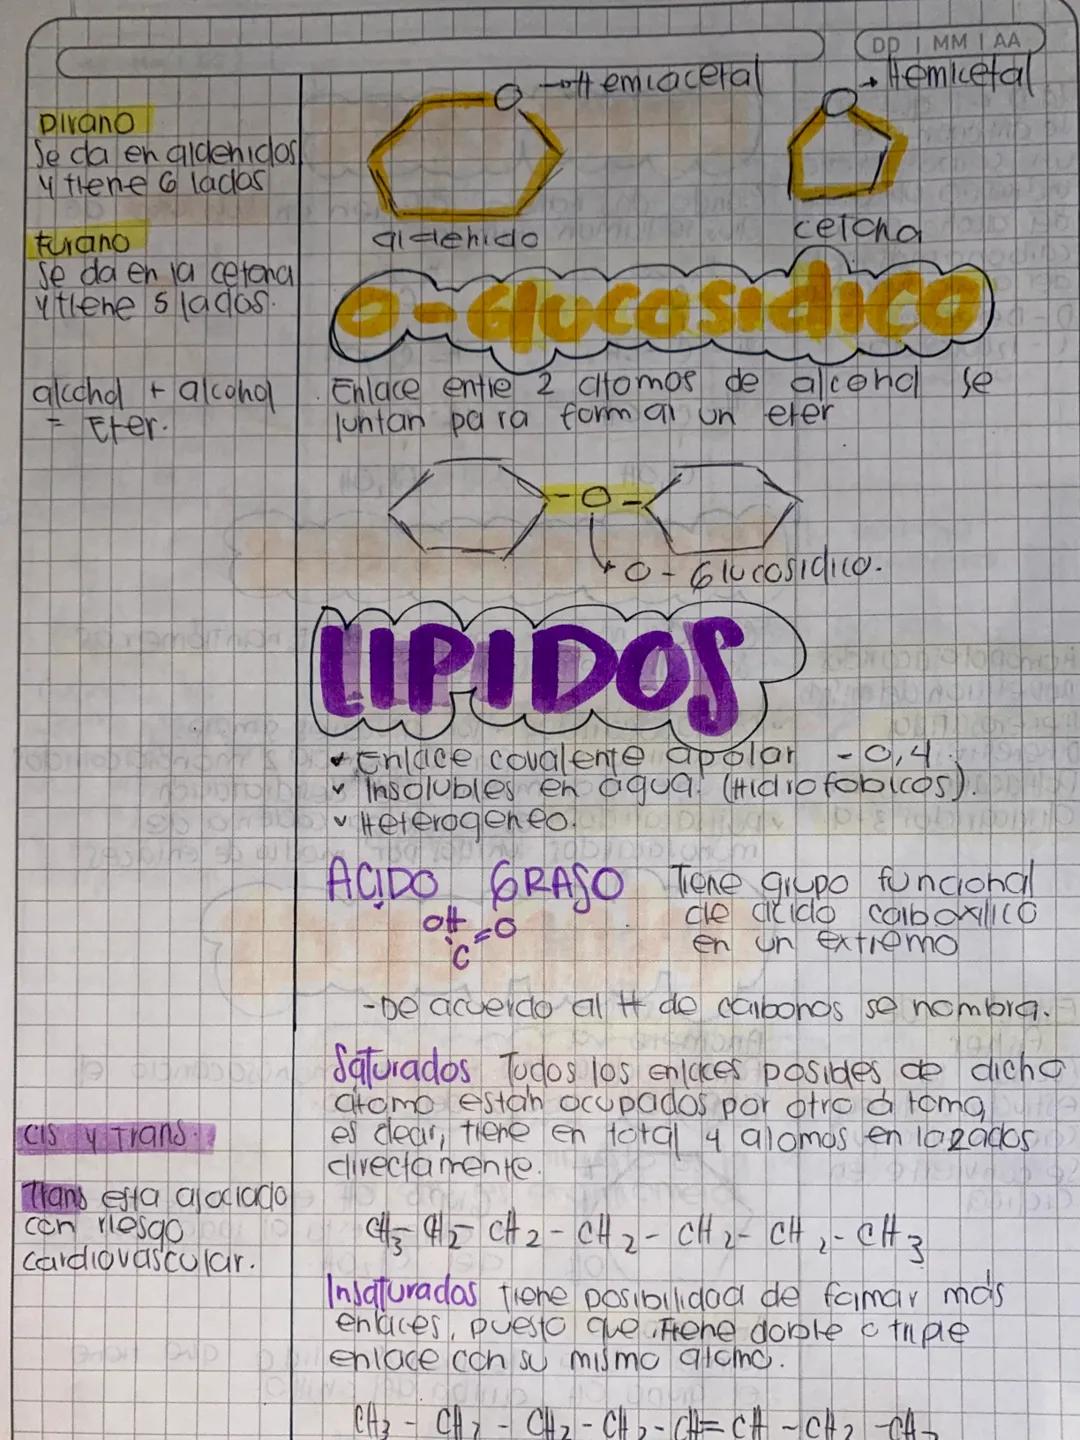 DD | MM | AA
Hemiacetal
Hemicetal
Pirano
Se da en aldehidos
y tiene 6 lados
furano
se da en la cetona
y tiene 5 lados.
aldehido
cetona
O-Glucosidico
alcohol + alcohol
= Eter.
Enlace entre 2 atomos de alcohol se
juntan para formar un eter
- O -
O - Glucosidico.
LIPIDOS
✓ Enlace covalente apolar - 0,4.
✓ Insolubles en agua. (Hidrofobicos).
✓ Heterogeneo.
ACIDO GRASO
OH
=O
C
Tiene grupo funcional
de acido carboxilico
en un extremo
- De acuerdo al # de carbonos se nombra.
Saturados Todos los enlaces posides de dicho
atomo están ocupados por otro átomo
es decir, tiene en total 4 atomos enlazados
directamente.
cis y Trans.
Trans esta asociado
con riesgo
cardiovascular.
CH3 - CH2 - CH2 - CH2 - CH2 - CH2 - CH3
Insaturados tiene posibilidad de formar más
enlaces, puesto que tiene doble o triple
enlace con su mismo atomo.
CH3 - CH2 - CH2 - CH2 - CH = CH - CH2 - CH2